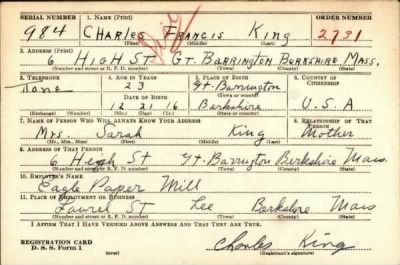 SERIAL NUMBER 1. NAME (Print) ORDER NUMBER
984 CHARLES FRANCIS KING 2731
(First) (Middle) (Last)
2. ADDRESS (Print)
6 HIGH ST GT. BARRINGTON BERKSHIRE MASS.
(Number and street or R. F. D. number) (Town) (County) (State)
3. TELEPHONE 4. AGE IN YEARS 5. PLACE OF BIRTH 6. COUNTRY OF CITIZENSHIP
None 23 Gt. Barrington
DATE OF BIRTH (Town or county)
12 21 16 Berkshire U.S.A
(Exchange) (Number) (Mo.) (Day) (Yr.) (State or country)
7. NAME OF PERSON WHO WILL ALWAYS KNOW YOUR ADDRESS 8. RELATIONSHIP OF THAT PERSON
Mrs. Sarah King Mother
(Mr., Mrs., Miss) (First) (Middle) (Last)
9. ADDRESS OF THAT PERSON
6 High St Gt. Barrington Berkshire Mass
(Number and street or R. F. D. number) (Town) (County) (State)
10. EMPLOYER'S NAME
Eagle Paper Mill
11. PLACE OF EMPLOYMENT OR BUSINESS
Laurel St Lee Berkshire Mass
(Number and street or R. F. D. number) (Town) (County) (State)
I AFFIRM THAT I HAVE VERIFIED ABOVE ANSWERS AND THAT THEY ARE TRUE.
REGISTRATION CARD
D. S. S. Form 1 Charles King
(Registrant's signature)